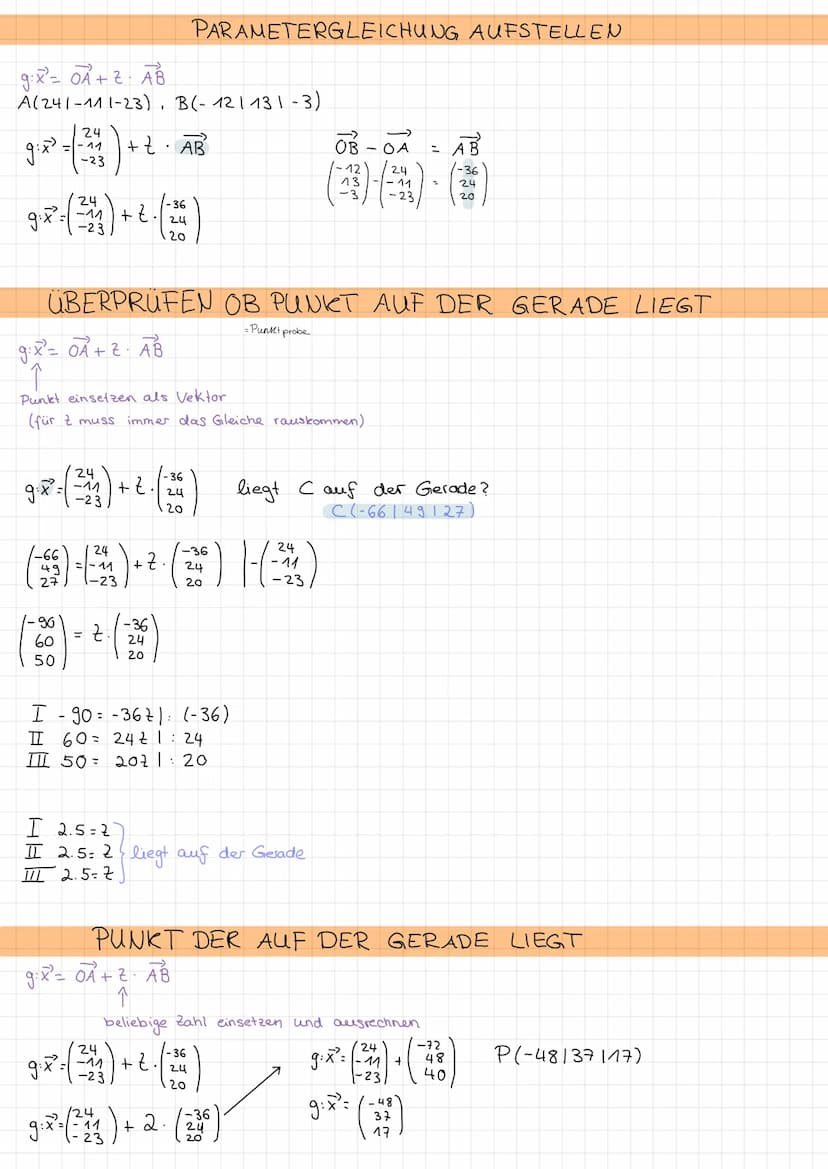 PARAMETERGLEICHUNG AUFSTELLEN
g:x⃗ = OA⃗ + z · AB⃗
A(24|-11|-23), B(-12|13|-3)
g:x⃗ = (24 -11 -23) + z · AB⃗
OB⃗ - OA⃗ = AB⃗
(-12 13 -3) - (24 -11 -23) = (-36 24 20)
g:x⃗ = (24 -11 -23) + z · (-36 24 20)
ÜBERPRÜFEN OB PUNKT AUF DER GERADE LIEGT
= Punktprobe
g:x⃗ = OA⃗ + z · AB⃗
Punkt einsetzen als Vektor
(für z muss immer das Gleiche rauskommen)
g:x⃗ = (24 -11 -23) + z · (-36 24 20) liegt C auf der Gerade?
C(-66|49|27)
(-66 49 27) = (24 -11 -23) + z · (-36 24 20) | - (24 -11 -23)
(-90 60 50) = z · (-36 24 20)
I -90 = -36z |: (-36)
II 60 = 24z | : 24
III 50 = 20z | : 20
I 2.5 = z
II 2.5 = z } liegt auf der Gerade
III 2.5 = z
PUNKT DER AUF DER GERADE LIEGT
g:x⃗ = OA⃗ + z · AB⃗
beliebige Zahl einsetzen und ausrechnen
g:x⃗ = (24 -11 -23) + z · (-36 24 20)
g:x⃗ = (24 -11 -23) + 2 · (-36 24 20)
g:x⃗ = (24 -11 -23) + (-72 48 40)
g:x⃗ = (-48 37 17)
P(-48|37|17)